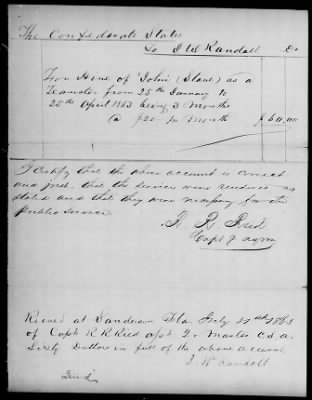 The Confederate States
To J W Randall Dr
For Hire of "John" (Slave) as a
Teamster from 25th January to
25th April 1863 being 3 Months
@ $20 - pr Month $60.00
I certify that the above account is correct
and just. that the services were rendered as
stated and that they were necessary for the
public service
R. R. Reid
Capt & aqm
Recvd at Sanderson Fla. July 21st 1863
of Capt R R Reid a Qr Master C.S.a.
Sixty Dollars in full of the above account
J. W Randall